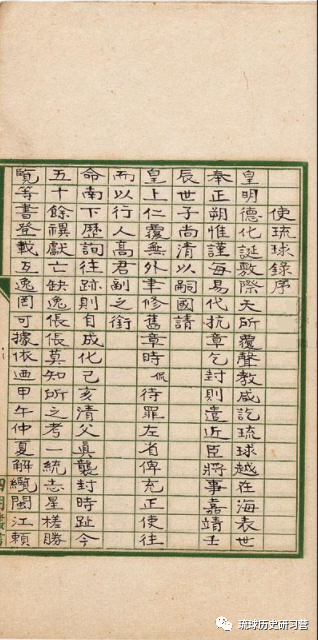 使琉球錄序
皇明德化誕敷際天所覆聲教咸訖琉球越在海表世
奉正朔惟謹每易代抗章乞封則遣近臣將事嘉靖壬
辰世子尚清以嗣國請
皇上仁覆無外聿修舊章時侃待罪左省俾充正使往
而以行人高君副之銜
命南下歷詢往跡則自成化己亥清父真襲封時趾今
五十餘禩獻亡缺逸倀倀莫知所之考一統志星槎勝
覽等書登載互逸罔可據依迺甲午仲夏解纜閩江賴
琉球历史研习营